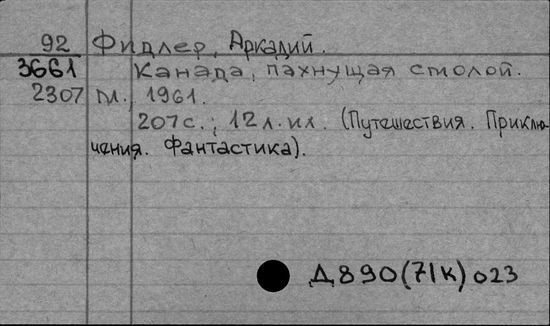 92 Фидлер, Аркадий.
3661 Канада, пахнущая смолой.
2307 М., 1961.
207 с.; 12 л. ил. (Путешествия. Приклю-
чения. Фантастика).
Д890(71к)023